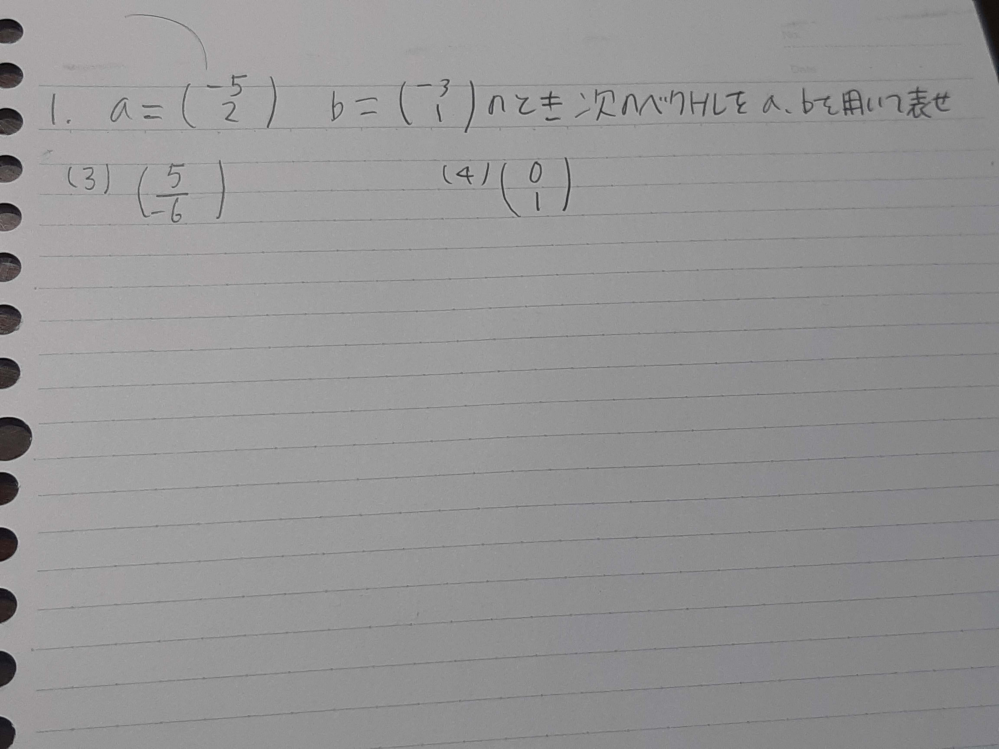 1. a = (-5 2) b = (-3 1) のとき 次のベクトルを a、bを用いて表せ
(3) (5 -6) (4) (0 1)